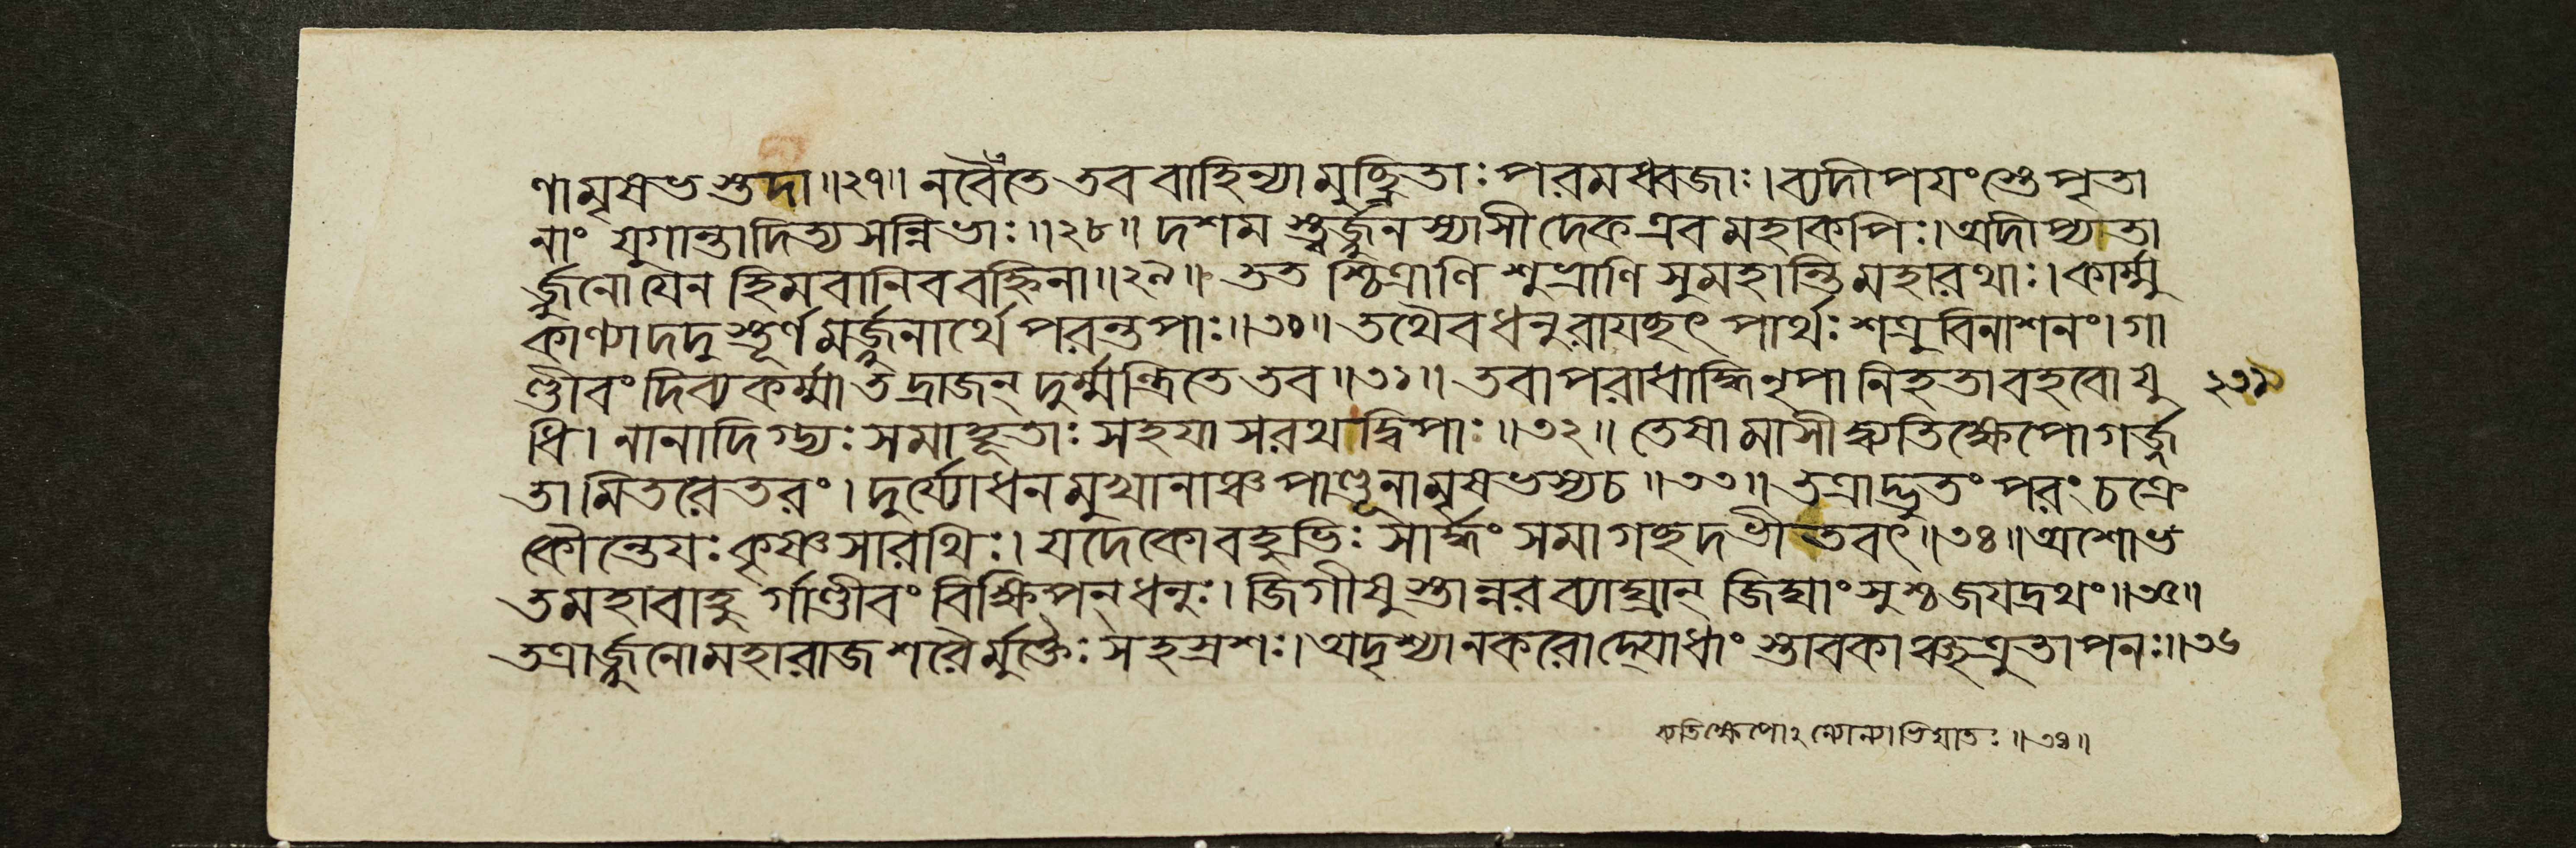 ণামৃষভস্তদা॥২৭॥ নবৈতে তব বাহিন্যামুচ্ছ্রিতাঃ পরমধ্বজাঃ। ব্যদীপয়ংস্তে পৃতা
নাং যুগান্তাদিত্যসন্নিভাঃ॥২৮॥ দশমস্ত্বর্জ্জুনস্যাসীদেক এব মহাকপিঃ। অদীপ্যতা
র্জ্জুনো যেন হিমবানিব বহ্নিনা॥২৯॥ ততশ্চিত্রাণি শুভ্রাণি সুমহান্তি মহারথাঃ। কার্ম্মু
কাণ্যাদদুস্তূর্ণমর্জ্জুনার্থে পরন্তপাঃ॥৩০॥ তথৈব ধনুরাযচ্ছৎ পার্থঃ শত্রুবিনাশনং। গা
ণ্ডীবং দিব্যকর্ম্মা তদ্রাজন্ দুর্ম্মন্ত্রিতে তব॥৩১॥ তবাপরাধাদ্ধি নৃপা নিহতা বহবো যু
২৩৯
ধি। নানাদিগ্ভ্যঃ সমাহূতাঃ সহযাঃ সরথদ্বিপাঃ॥৩২॥ তেষামাসীদ্ব্যতিক্ষেপো গর্জ্জ
তামিতরেতরং। দুর্য্যোধনমুখানাঞ্চ পাণ্ডূনামৃষভস্য চ॥৩৩॥ তত্রাদ্ভুতং পরং চক্রে
কৌন্তেয়ঃ কৃষ্ণসারথিঃ। যদেকো বহুভিঃ সার্দ্ধং সমাগচ্ছদভীতবৎ॥৩৪॥ অশোভ
ত মহাবাহুর্গাণ্ডীবং বিক্ষিপন্ ধনুঃ। জিগীষুস্তান্নরব্যাঘ্রান্ জিঘাংসুশ্চ জয়দ্রথং॥৩৫॥
তত্রার্জ্জুনো মহারাজ শরৈর্মুক্তৈঃ সহস্রশঃ। অদৃশ্যানকরোদ্যোধাংস্তাবকাঞ্ছত্রুতাপনঃ॥৩৬
ব্যতিক্ষেপোঽন্যোন্যাভিঘাতঃ॥৩৩॥